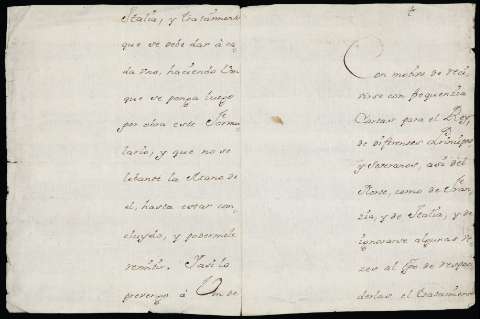 Italia, y tratamiento
que se debe dar à ca
da uno, haciendo Vm
que se ponga luego
por obra este Formu
lario, y que no se
lebante la Mano de
el, hasta estar con
cluydo, y podermele
remitir. Yasi lo
prevengo à Vm de
+
Con motivo de reci
virse con frequenzia
Cartas para el Rey,
de diferentes Principes
y Soveranos, asi del
Norte, como de Fran
zia, y de Italia, y de
ignorarse algunas ve
zes al tpo de respon
derlas, el tratamiento